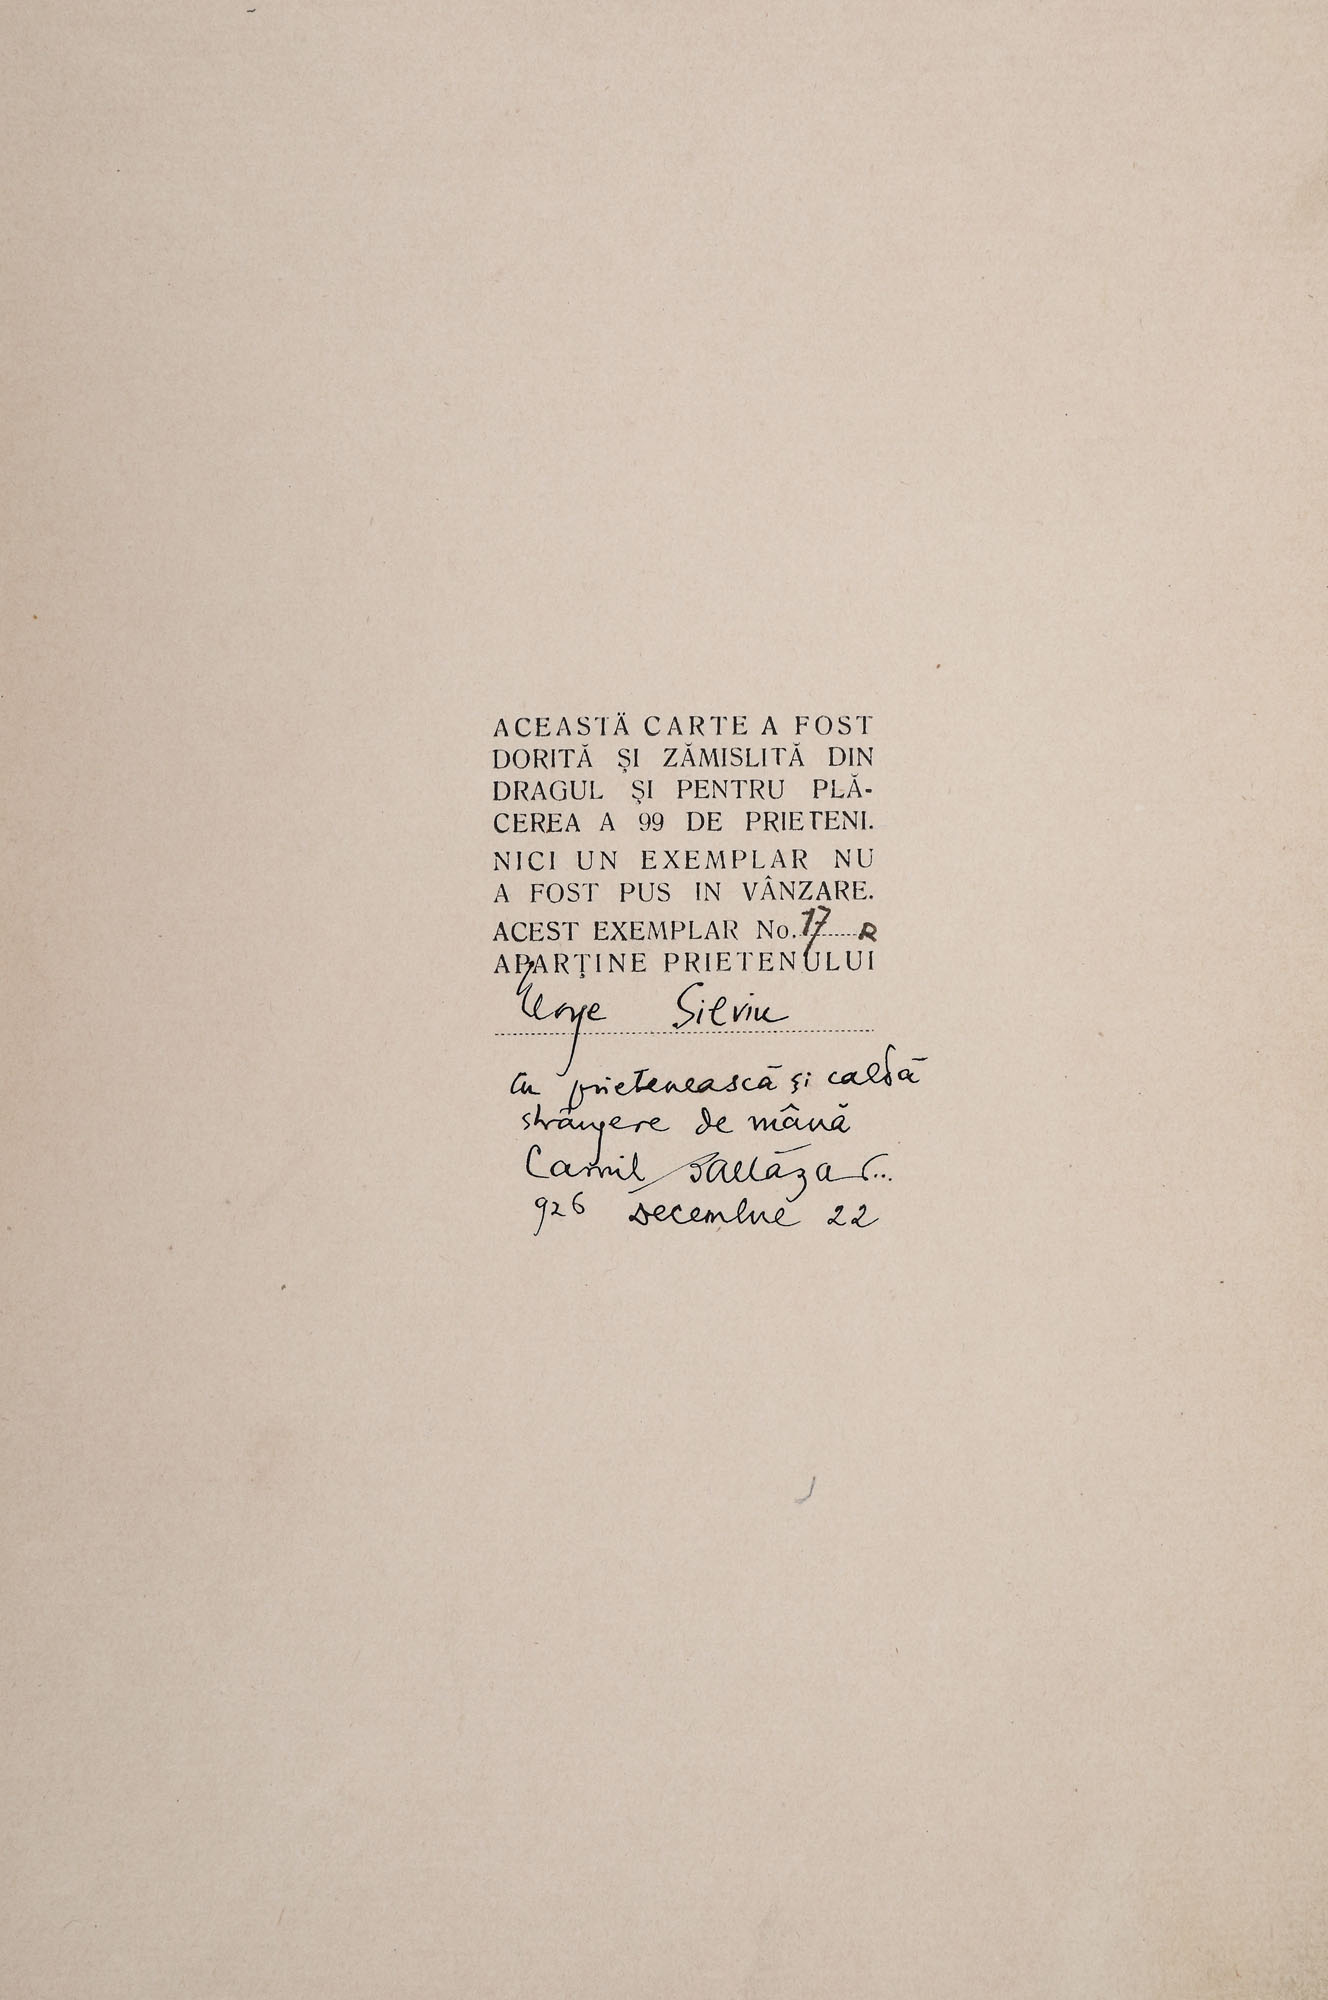 ACEASTĂ CARTE A FOST
DORITĂ ȘI ZĂMISLITĂ DIN
DRAGUL ȘI PENTRU PLĂ-
CEREA A 99 DE PRIETENI.
NICI UN EXEMPLAR NU
A FOST PUS IN VÂNZARE.
ACEST EXEMPLAR No. 17 R
APARȚINE PRIETENULUI
Silviu
cu prietenească și caldă
strângere de mână
Camil Baltazar...
926 Decembrie 22